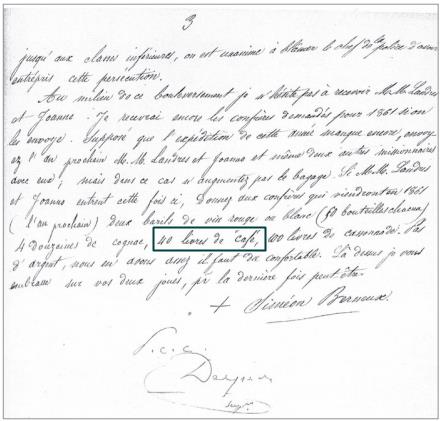 3
jusqu'aux classes inférieures, on est unanime à blâmer le chef de la police d'avoir
entrepris cette persécution.
Au milieu de ce bouleversement je n'hésite pas à recevoir M.M. Landres
et Joanno. Je recevrai encore les confrères demandés pour 1861 si on
les envoye. Supposé que l'expédition de cette année manque encore, envoy-
ez l'an prochain M.M. Landres et Joanno et même deux autres missionnaires
avec eux; mais dans ce cas n'augmentez pas le bagage. Si M.M. Landres
et Joanno entrent cette fois ci, donnez aux confrères qui viendront en 1861
(l'an prochain) deux barils de vin rouge ou blanc (50 bouteilles chacun)
4 douzaines de cognac, 40 livres de "café", 100 livres de cassonade. Pas
d'argent, nous en avons assez il faut du confortable. Là dessus je vous
embrasse sur vos deux joues, pr la dernière fois peut être.
+ Siméon Berneux.
P.c.c.